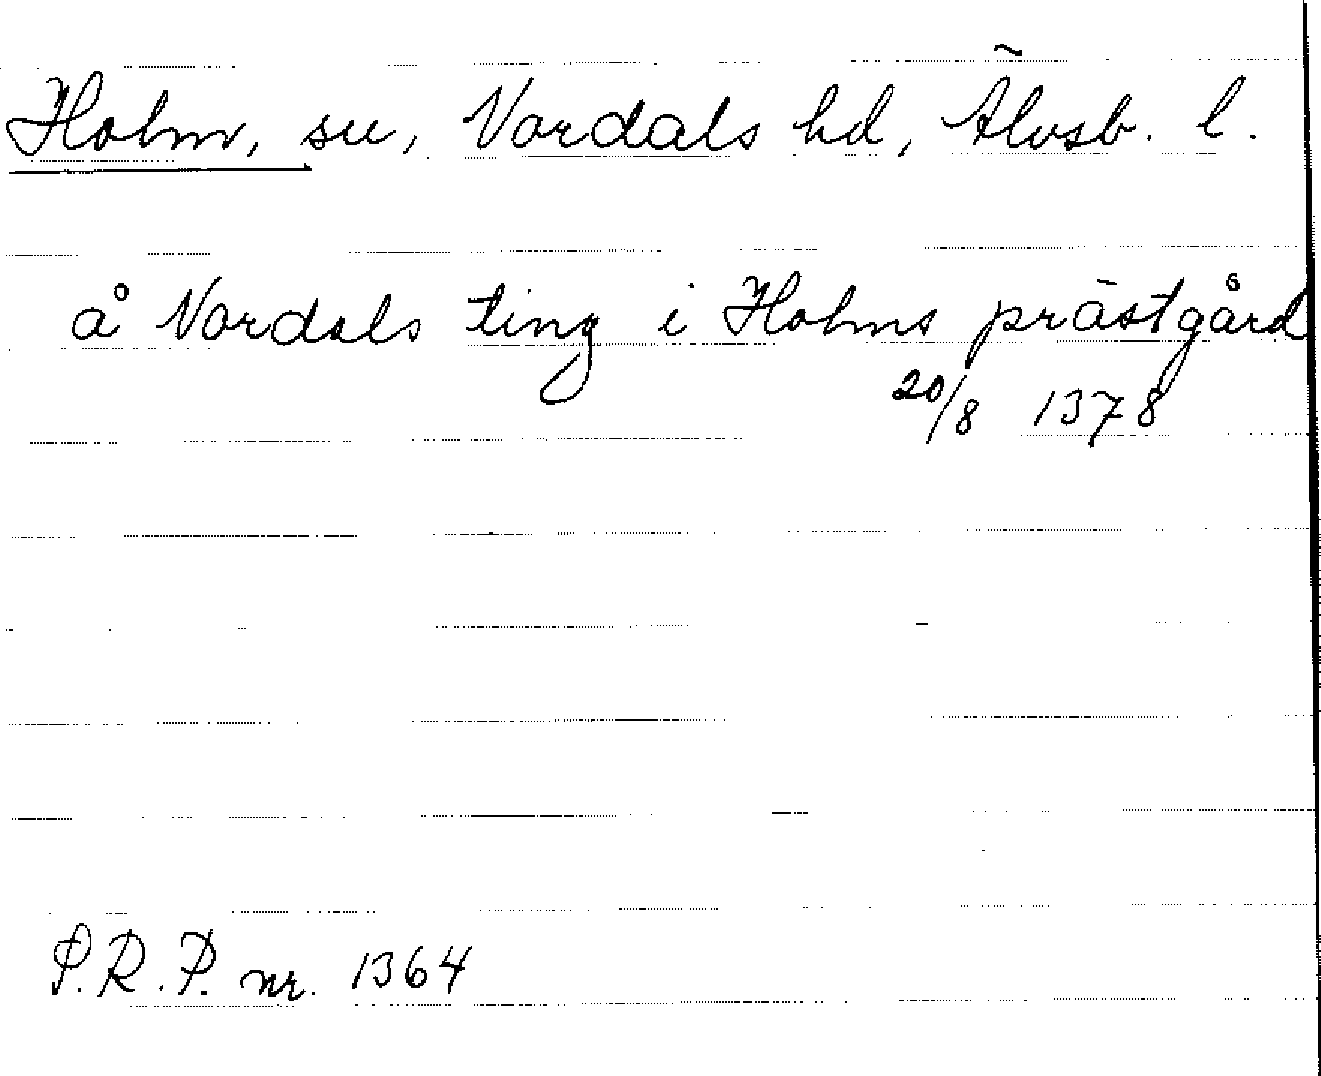 Holm, sn, Nordals hd, Älvsb. l.
å Nordals ting i Holms prästgård
20/8 1378
S.R.P. nr. 1364